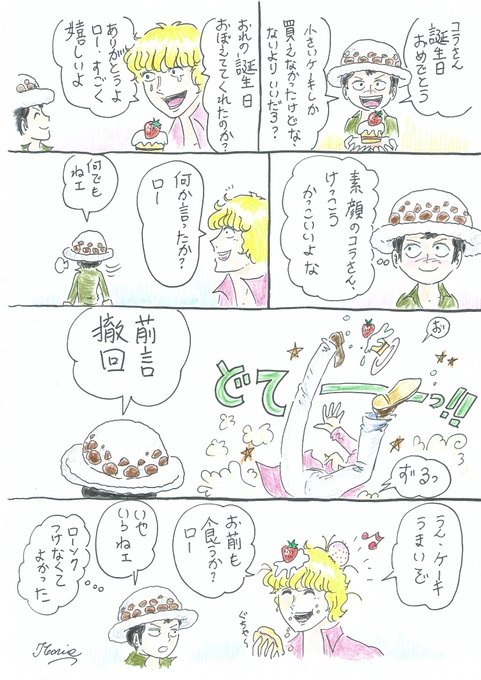 コラさん
誕生日
おめでとう
小さいケーキしか
買えなかったけどな
ないよりいいだろ?
おれの誕生日
おぼえててくれたのか?
ありがとうよ
ロー、すごく
嬉しいよ
素顔のコラさん、
けっこう
かっこいいよな
何か言ったか?
ロー
何でも
ねェ
お
どてーっ!!
ずるっ
前言
撤回
うん、ケーキ
うまいぞ
お前も
食うか?
ロー
ぐちゃ〜
いや
いらねェ
ローソク
つけなくて
よかった